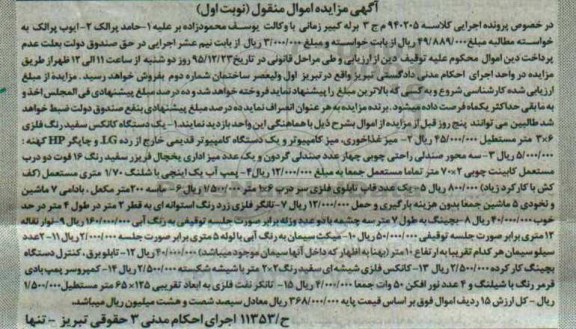 آگهی مزایده اموال منقول (نوبت اول)
در خصوص پرونده اجرایی کلاسه ۹۴۰۲۰۵ م ج ۳ برله کبیر زمانی با وکالت یوسف محمودزاده بر علیه ۱- حامد پرالک ۲- ایوب پرالک به
خواسته مطالبه مبلغ ۴۹/۸۸۹/۰۰۰ ریال از بابت خواسته و مبلغ ۳/۰۰۰/۰۰۰ ریال از بابت نیم عشر اجرایی در حق صندوق دولت بعلت عدم
پرداخت دین اموال محکوم علیه توقیف دین از ارزیابی و طی مراحل قانونی در تاریخ ۹۵/۱۲/۲۳ روز دو شنبه از ساعت ۱۱ الی ۱۲ ظهر از طریق
مزایده در واحد اجرای احکام مدنی دادگستری تبریز واقع در تبریز اول ولیعصر ساختمان شماره دوم بفروش خواهد رسید . مزایده از مبلغ
ارزیابی شده کارشناسی شروع و به کسی که بالاترین مبلغ را پیشنهاد نماید فروخته خواهد شد و ده درصد مبلغ پیشنهادی فی المجلس اخذ و
به مابقی حداکثر یکماه فرصت داده میشود. برنده مزایده به هر عنوان انصراف نماید ده درصد مبلغ پیشنهادی بنفع صندوق دولت ضبط خواهد
شد طالبین می توانند پنج روز قبل از مزایده از اموال بشرح ذیل با هماهنگی این واحد بازدید نمایند: ۱- یک دستگاه کانکس سفید رنگ فلزی
۶×۳ متر مستطیل ۴۵/۰۰۰/۰۰۰ ریال ۲- میز غذاخوری، میز کامپیوتر و یک دستگاه کامپیوتر قدیمی خارج از رده LG و چاپگر HP کهنه :
۵/۰۰۰/۰۰۰ ریال ۳- سه محور صندلی راحتی چوبی چهار عدد صندلی گردون و یک عدد میز اداری یخچال فریزر سفید رنگ ۱۶ فوت دو درب
مستعمل کابینت چوبی ۲×۷۰ متر تماما مستعمل جمعا به مبلغ ۱۲/۰۰۰/۰۰۰ ریال ۴- پمپ آب یک اینچی با شلنگ ۱/۷۰ متری مستعمل (کف
کش با کارکرد زیاد) ۸۰۰/۰۰۰ ریال ۵- یک عدد قاب تابلوی فلزی سر درب ۶×۱ متر ۱/۵۰۰/۰۰۰ ریال ۶- ماسه ۲۰۰ متر مکعب ، بادامی ۷ ماشین
و نخودی ۵ ماشین جمعا بدون هزینه بارگیری و حمل ۱۲/۰۰۰/۰۰۰ ریال ۷- تانکر فلزی زرد رنگ استوانه ای به قطر ۲ متر در طول ۴ متر در حد
خوب ۴۰/۰۰۰/۰۰۰ ریال ۸- بچینگ به طول ۷ متر سه چشمه با دو عدد وزنه برابر صورت جلسه توقیفی به رنگ آبی ۱۶۰/۰۰۰/۰۰۰ ریال ۹- نوار نقاله
۱۲ متری برابر صورت جلسه توقیفی ۵۰/۰۰۰/۰۰۰ ریال ۱۰- جیگت سیمان به رنگ آبی با لوله ۵ متری برابر صورت جلسه ۲/۰۰۰/۰۰۰ ریال ۱۱- ۲ عدد
سیلو سیمان هر کدام تقریبا به ارتفاع ۱۰ متر (بهنا به اظهار که داخل آنها سیمان موجود میباشد) ۴۰/۰۰۰/۰۰۰ ریال ۱۲- تابلو برق ، کنترل دستگاه
بچینگ کار کرده ۲/۵۰۰/۰۰۰ ریال ۱۳- کانکس فلزی شیشه ای سفید رنگ ۲×۲ متر با شیشه شکسته ۲/۵۰۰/۰۰۰ ریال ۱۴- کمپروسر پمپ بادی
قرمز رنگ با شیلنگ و ۴ عدد نور افکن ۵۰ وات جمعا ۴/۰۰۰/۰۰۰ ریال ۱۵- تانکر نفت فلزی به ابعاد تقریبی ۱۲۵×۶۵ متر مستطیل ۱/۵۰۰/۰۰۰
ریال - کل ارزش ۱۵ ردیف اموال فوق بر اساس قیمت پایه ۳۶۸/۰۰۰/۰۰۰ ریال معادل سیصد شصت و هشت میلیون ریال میباشد.
ح/۱۱۳۵۳ اجرای احکام مدنی ۳ حقوقی تبریز - تنها